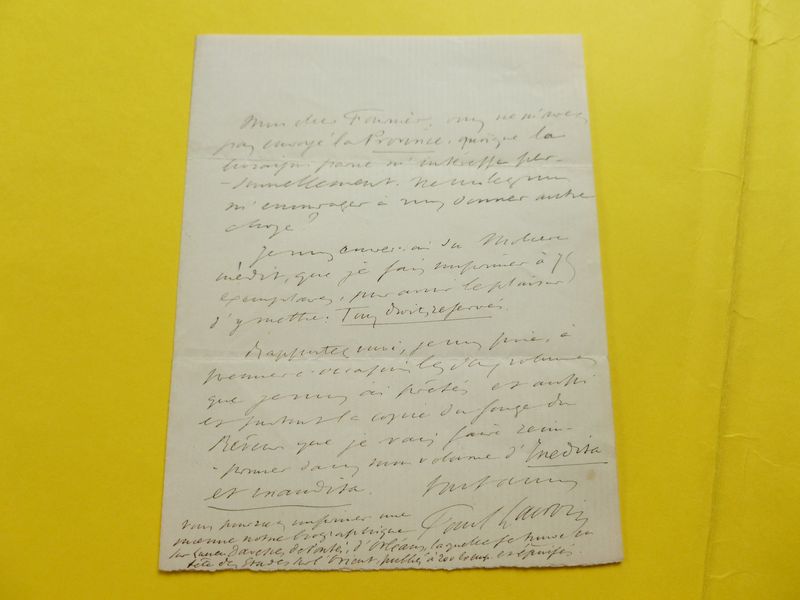 Mon cher Fournier, vous ne m'avez
pas envoyé la Province, quoique la
livraison parue m'intéresse per-
-sonnellement. Ne voulez-vous
m'encourager à vous donner autre
chose?
Je vous enverrai du Moliere
inédit, que je fais imprimer à 75
exemplaires, pour avoir le plaisir
d'y mettre: Tous droits reservés.
Rapportez-moi, je vous prie, à
premiere occasion les volumes
que je vous ai prêtés et aussi
et surtout la copie du songe du
Rêveur que je vais faire reim-
-primer dans mon volume d'Inedita
et inaudita. Tout à vous
Paul Lacroix
Vous pourriez imprimer une
notice biographique
sur d'Orléans, laquelle se trouve en
tête des Etudes sur l'Orient, publiés à 200 et épuisés.